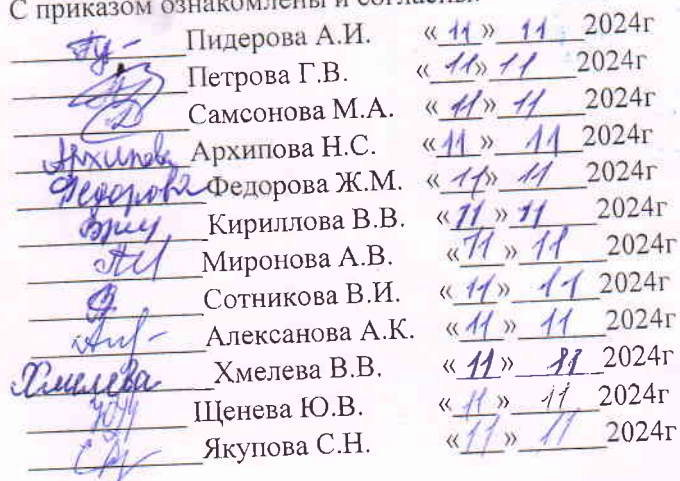 С приказом ознакомлены и согласны.
Пидерова А.И. « 11 » 11 2024г
Петрова Г.В. « 11» 11 2024г
Самсонова М.А. « 11 » 11 2024г
Архипова Архипова Н.С. «11 » 11 2024г
Федорова Федорова Ж.М. « 11» 11 2024г
Кириллова В.В. « 11 » 11 2024г
Миронова А.В. « 11 » 11 2024г
Сотникова В.И. « 11 » 11 2024г
Алексанова А.К. « 11 » 11 2024г
Хмелева Хмелева В.В. « 11 » 11 2024г
Щенева Ю.В. « 11 » 11 2024г
Якупова С.Н. « 11 » 11 2024г